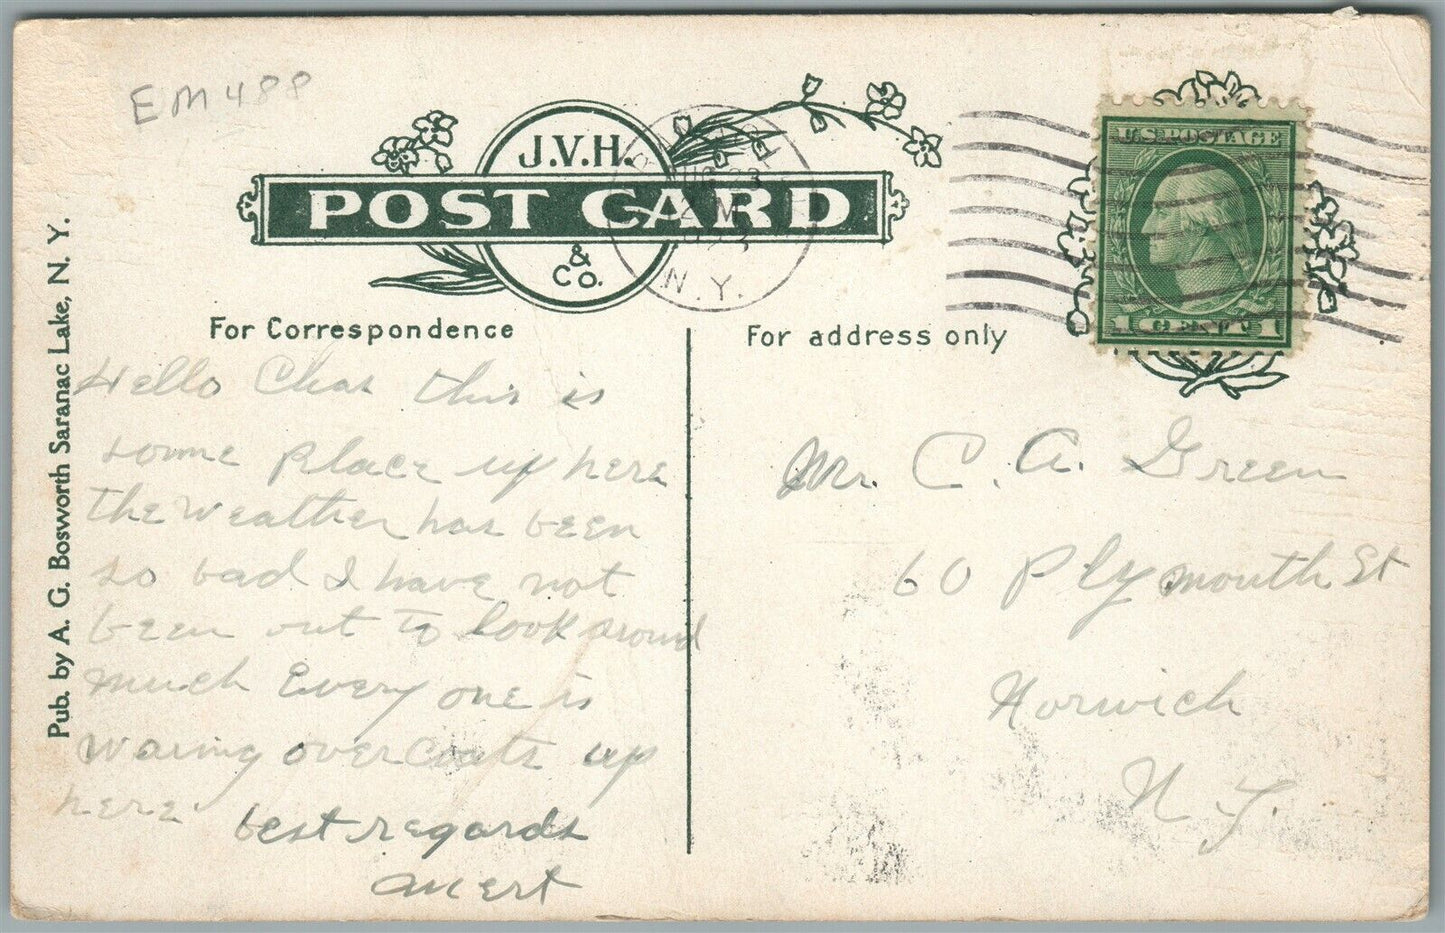 EM488
J.V.H.
POST CARD
& Co.
AUG 23
M
N.Y.
U.S. POSTAGE
1 CENT 1
For Correspondence
For address only
Pub. by A. G. Bosworth Saranac Lake, N. Y.
Hello Chas this is
some place up here
the weather has been
so bad I have not
been out to look around
much Every one is
waring over Coats up
here best regards
Mr. C. A. Green
60 Plymouth St
Norwich
N Y.